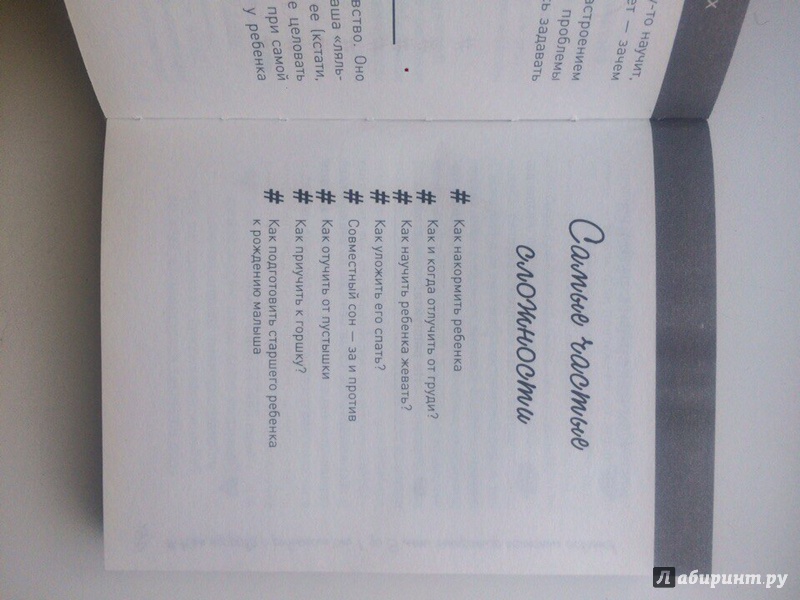 х
у-то научит,
ет — зачем
астроением
проблемы
сь задавать
вство. Оно
аша «ляль-
ее (кстати,
е целовать
при самой
у ребенка
Самые частые
сложности
# Как накормить ребенка
# Как и когда отлучить от груди?
# Как научить ребенка жевать?
# Как уложить его спать?
# Совместный сон — за и против
# Как отучить от пустышки
# Как приучить к горшку?
# Как подготовить старшего ребенка
к рождению малыша
Лабиринт.ру